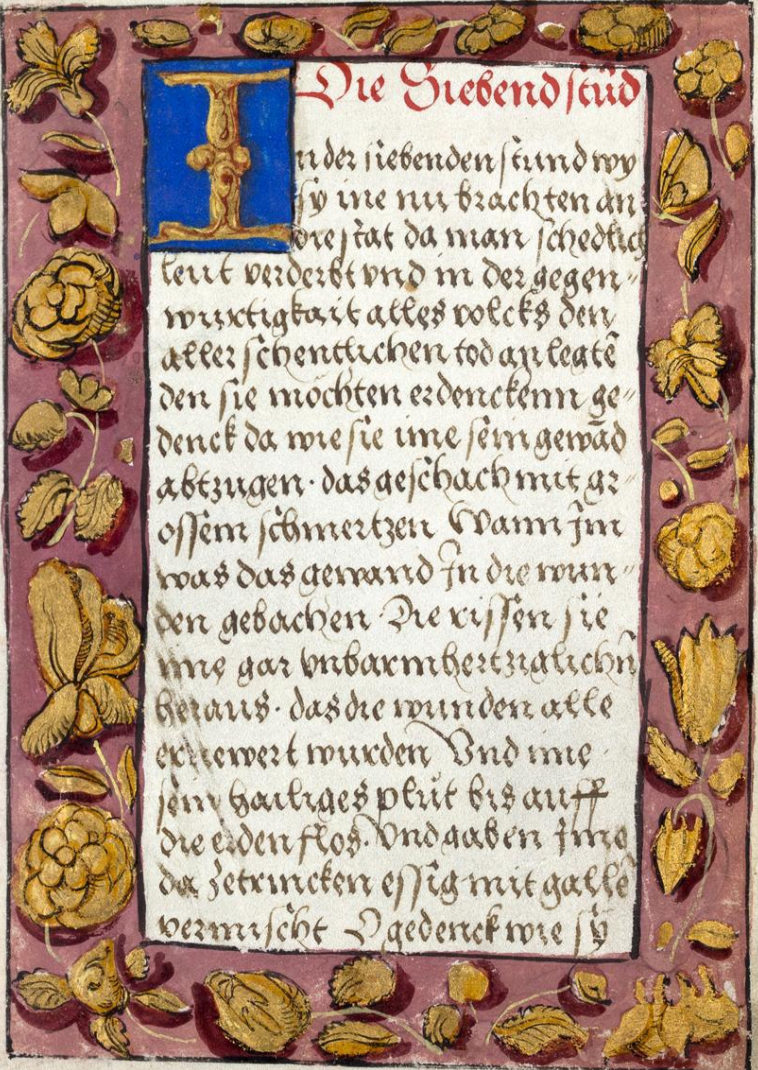 Die Siebend stūd
In der siebenden stund wy
sy ine nu brachten an
die stat da man schedlich
leut verderbt vnd in der gegen⸗
wurtigkait alles volcks den
aller schentlichen tod an legtē
den sie mochten erdenckenn ge⸗
denck da wie sie ime sein gewād
abtzugen · das geschach mit gr⸗
ossem schmertzen Wann Im
was das gewand In die wun⸗
den gebachen · Die rissen sie
ime gar vnbarmhertziglichn̄
heraus · das die wunden alle
ernewert wurden Vnd ime
sein hailiges plut bis auff
die erden flos · Vnd gaben Ime
da zetrincken essig mit galle
vermischt O gedenck wie sy